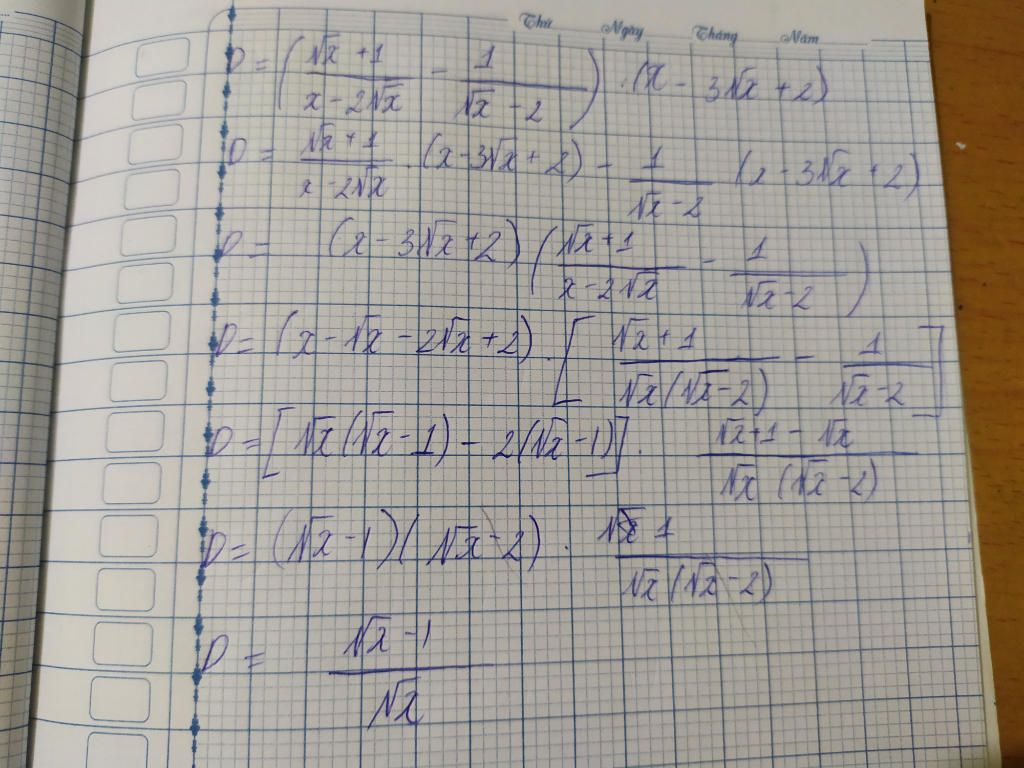 Thứ Ngày Tháng Năm
D = ( (√x + 1)/(x - 2√x) - 1/(√x - 2) ) . (x - 3√x + 2)
D = (√x + 1)/(x - 2√x) . (x - 3√x + 2) - 1/(√x - 2) (x - 3√x + 2)
D = (x - 3√x + 2) ( (√x + 1)/(x - 2√x) - 1/(√x - 2) )
D = (x - √x - 2√x + 2) . [ (√x + 1)/(√x(√x - 2)) - 1/(√x - 2) ]
D = [ √x(√x - 1) - 2(√x - 1) ] . (√x + 1 - √x)/(√x (√x - 2))
D = (√x - 1)(√x - 2) . 1/(√x(√x - 2))
D = (√x - 1)/√x